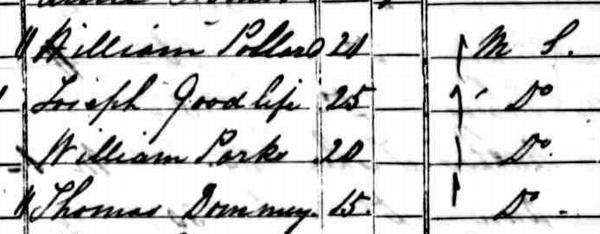 William Pollard 20 M S.
Joseph Goodlife 25 Do
William Parks 20 Do.
Thomas Dommey. 15. Do.